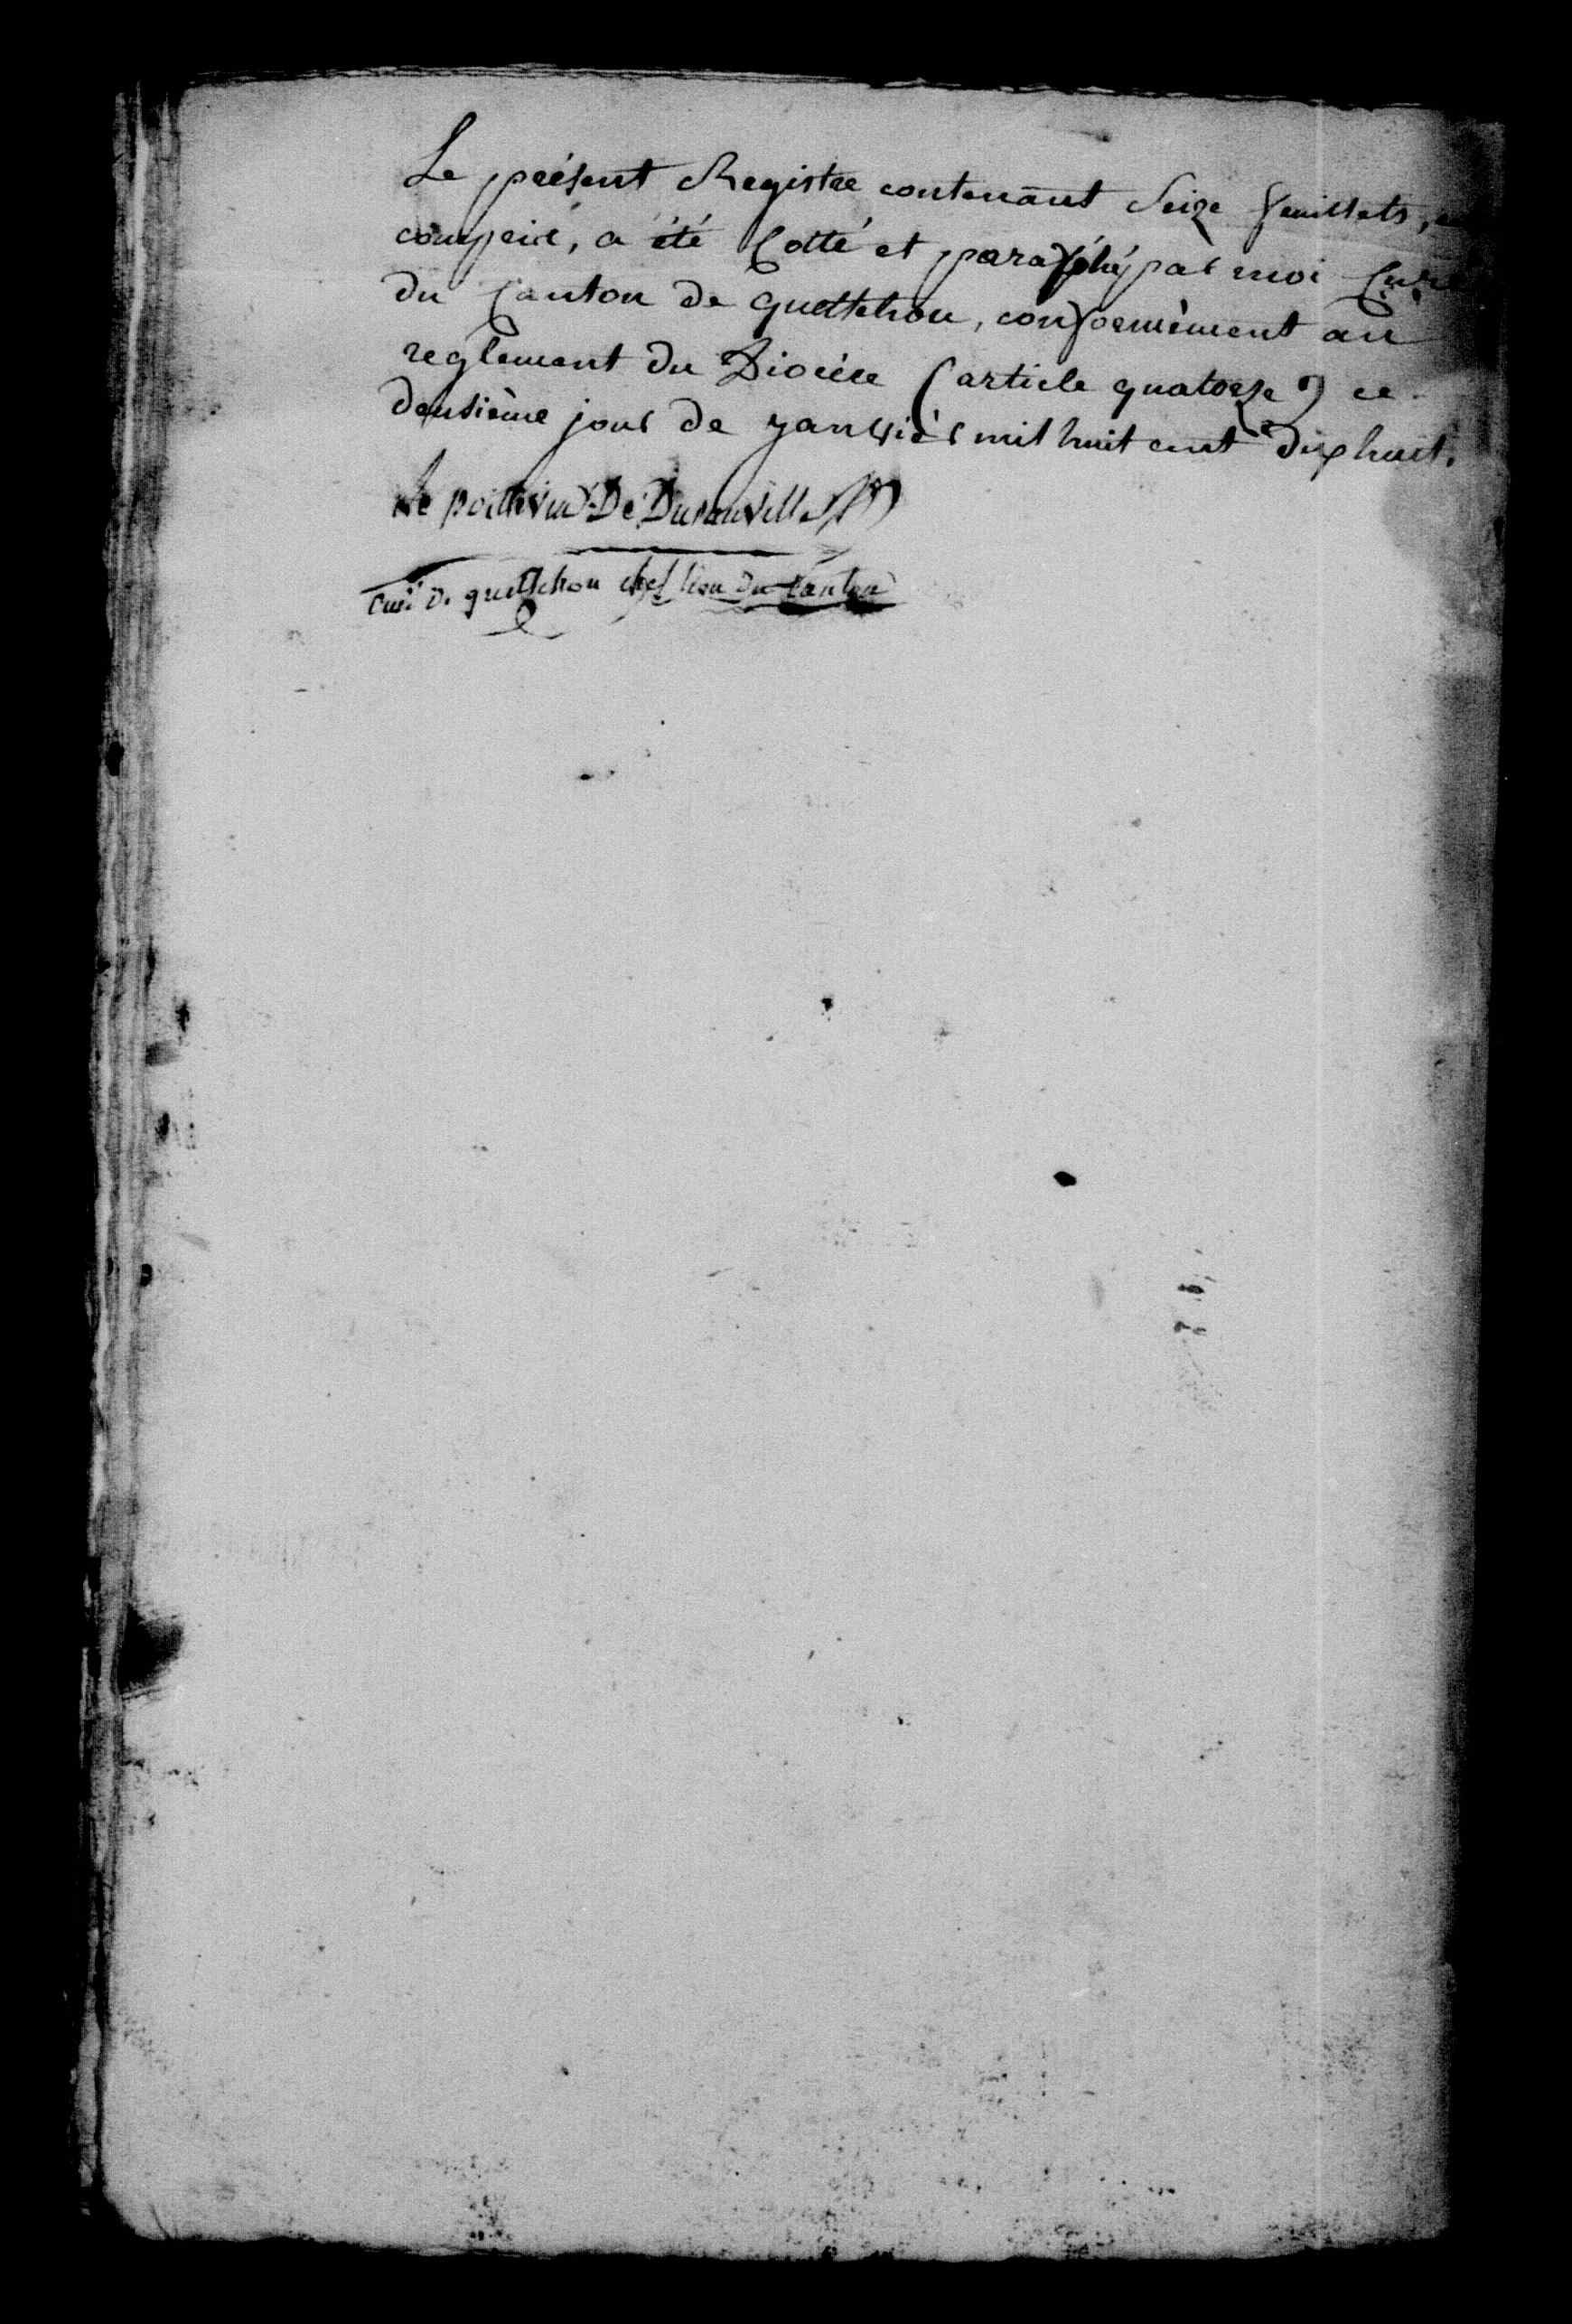 Le présent Registre contenant Seize feuillets,
compris, a été Cotté et paraphé par moi Curé
du Canton de quettehou, conformèment au
reglement du Diocèse (article quatorze) ce
deusième jour de janvièr mil huit cent dix huit.
Le poittevin De Duranville
curé De quettehou chef lieu Du Canton